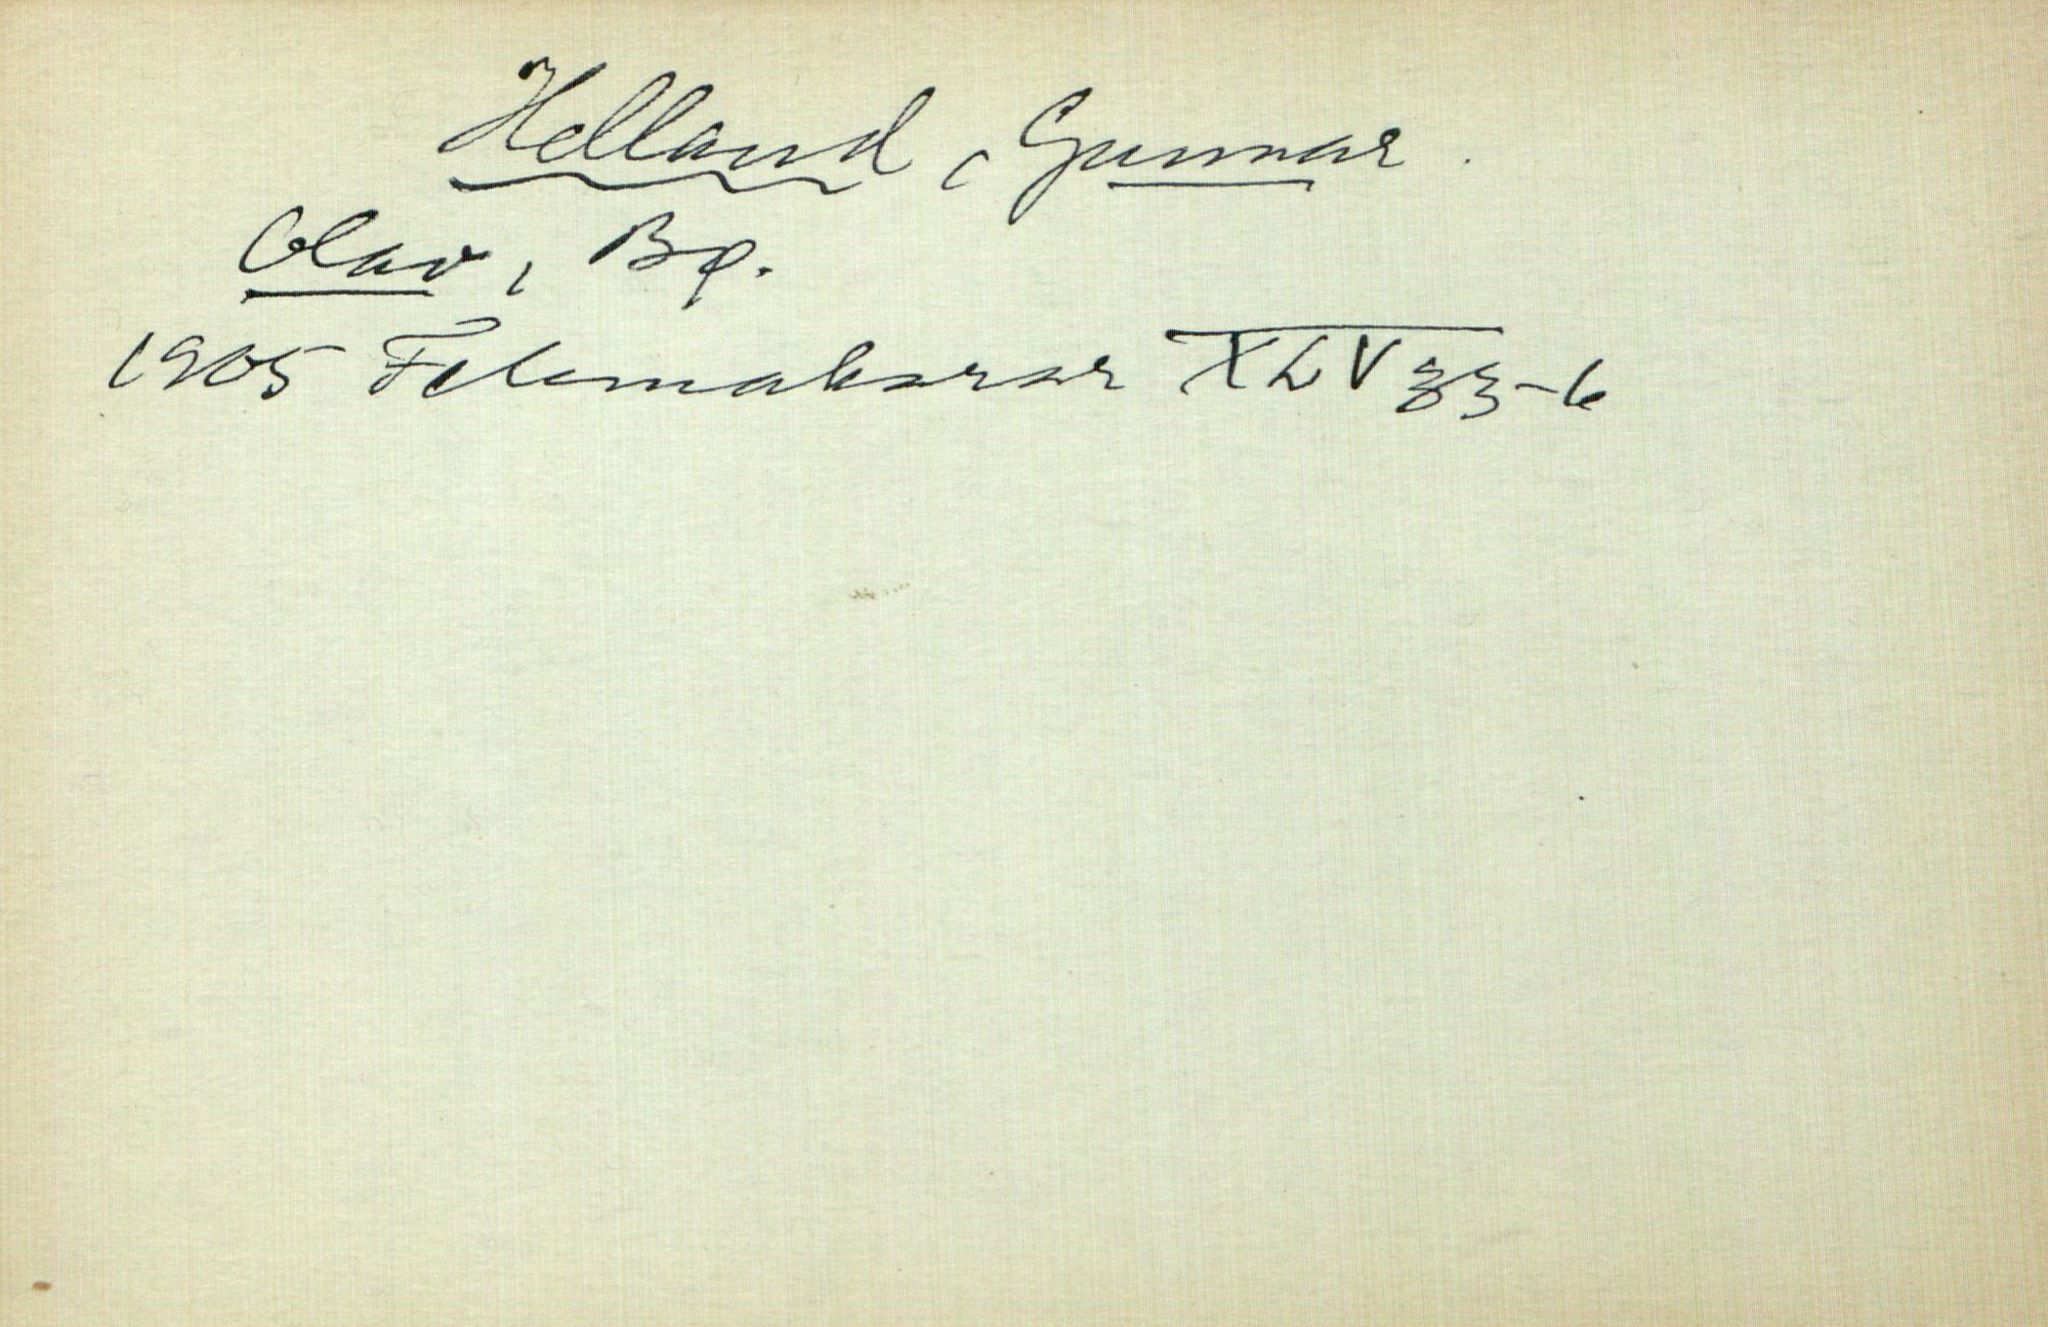 Helland, Gunnar.
Olav, Bø.
1905 Felemakarar XLV 33-6